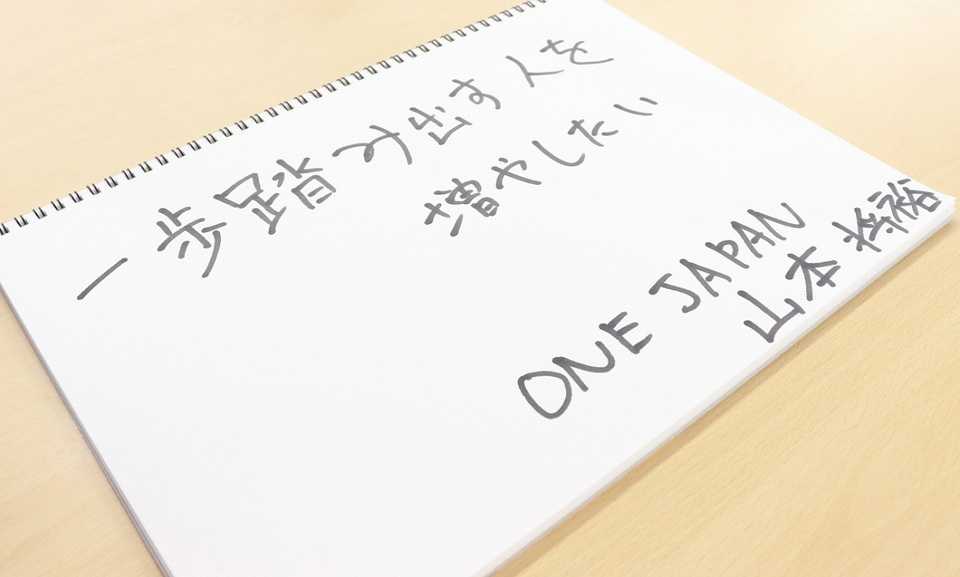 一歩踏み出す人を
増やしたい
ONE JAPAN
山本将裕